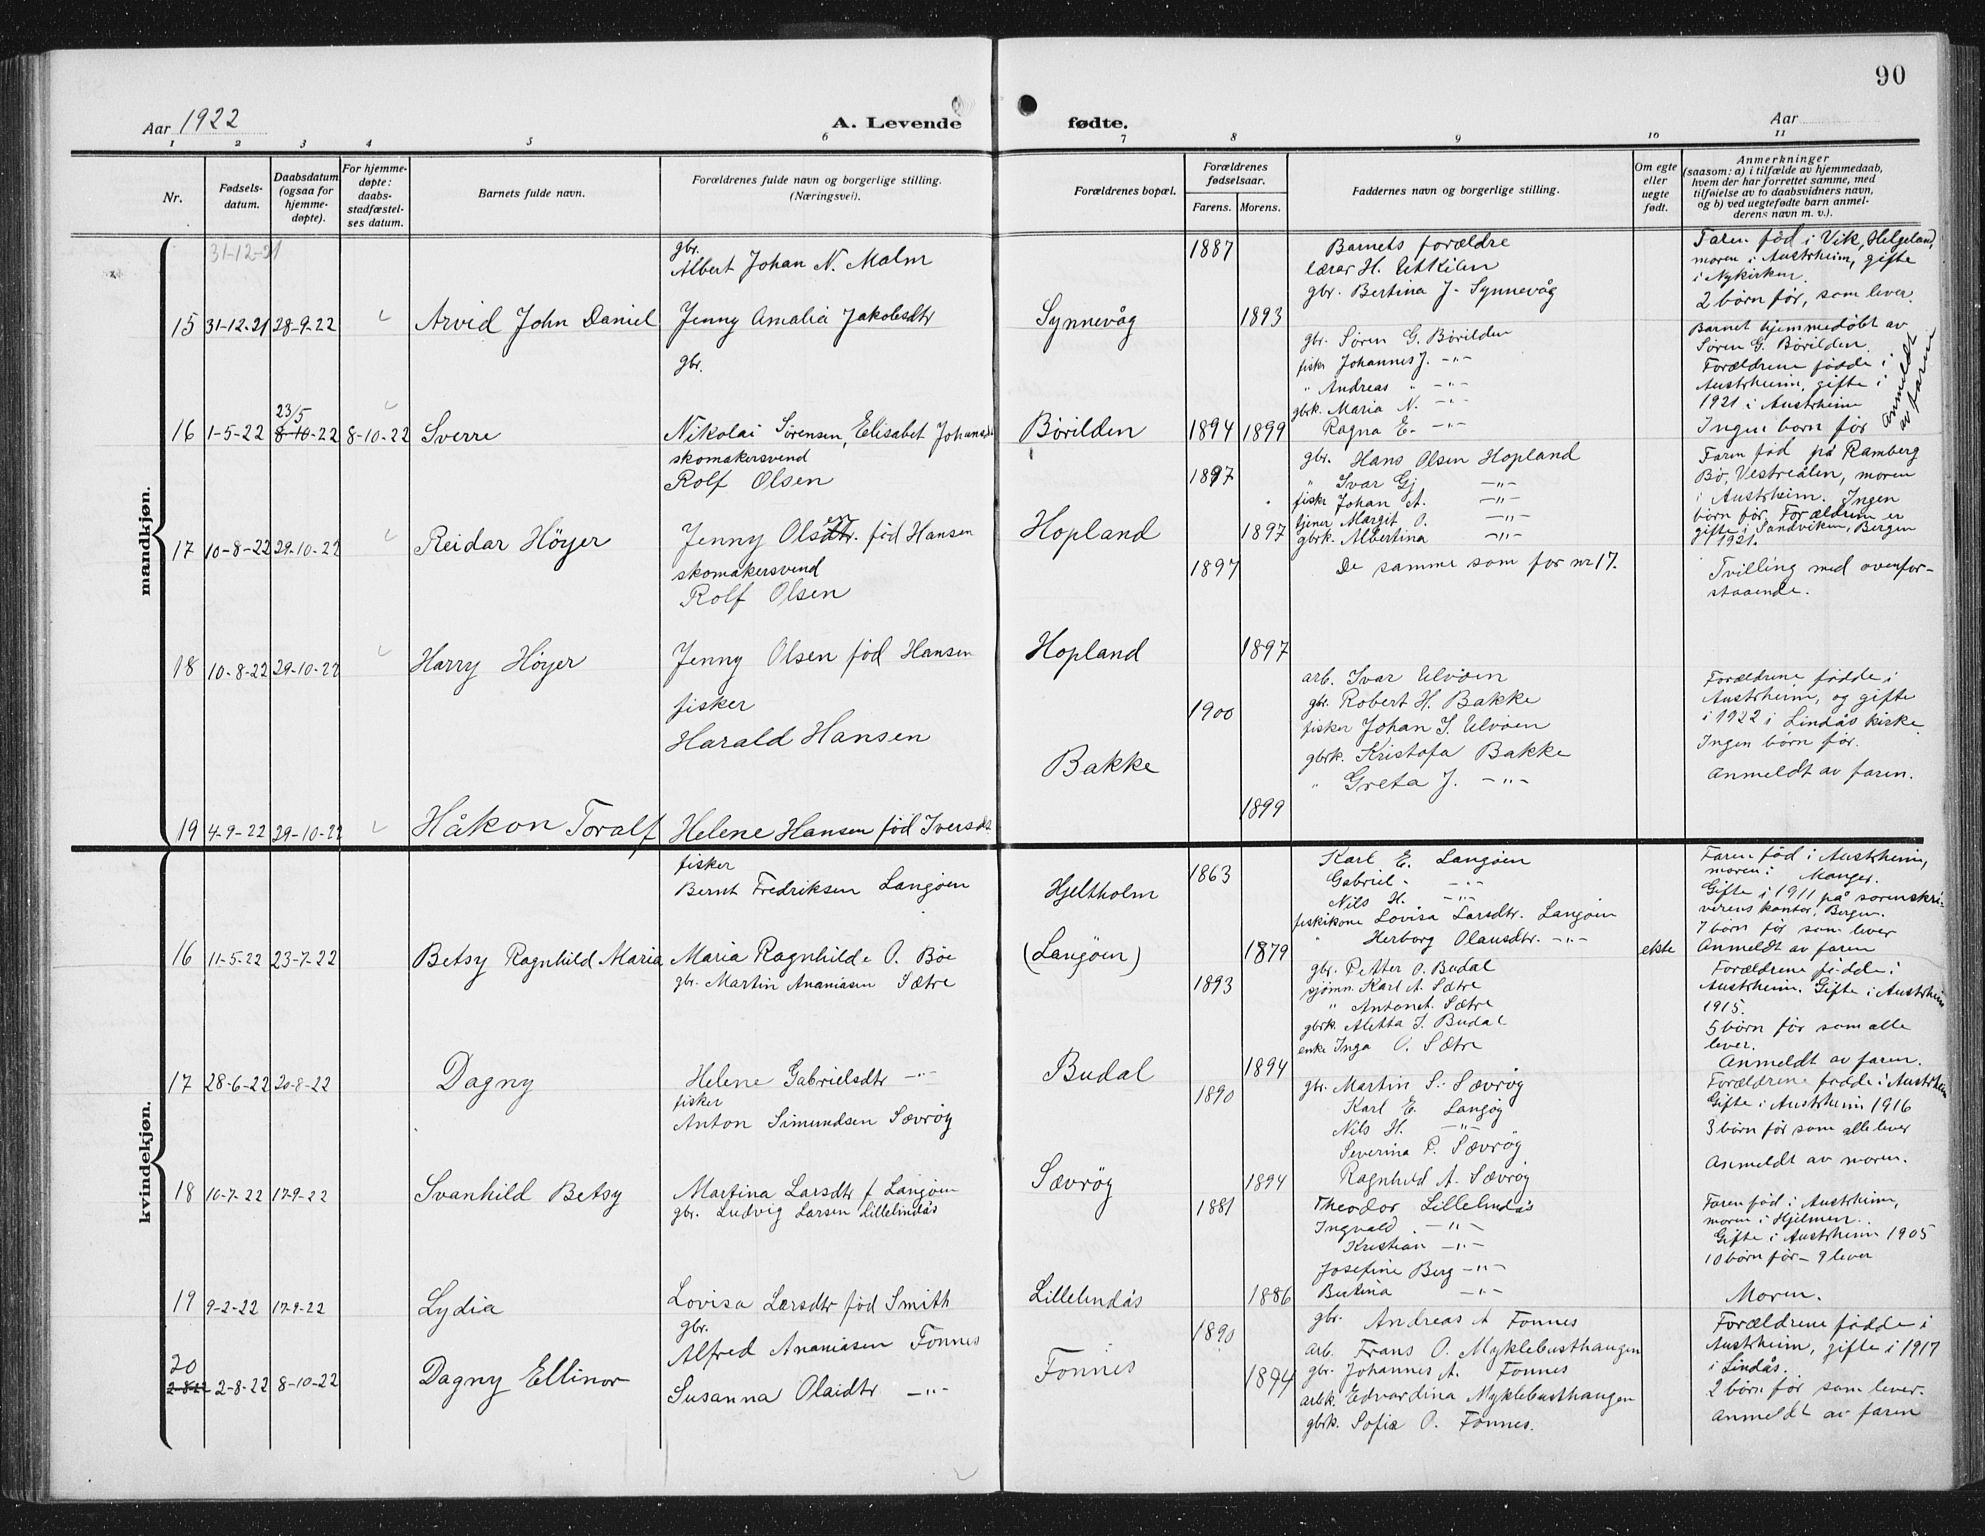 90
Aar 1922
A. Levende fødte.
Aar
1 2 3 4 5 6 7 8 9 10 11
Nr.
Fødsels-
datum.
Daabsdatum
(ogsaa for
hjemme-
døpte).
For hjemme-
døpte:
daabs-
stadfæstel-
ses datum.
Barnets fulde navn.
Forældrenes fulde navn og borgerlige stilling.
(Næringsvei).
Forældrenes bopæl.
Forældrenes
fødselsaar.
Farens. Morens.
Faddernes navn og borgerlige stilling.
Om egte
eller
uegte
født.
Anmerkninger
(saasom: a) i tilfælde av hjemmedaab,
hvem der har forrettet samme, med
tilføielse av to daabsvidners navn,
og b) ved uegtefødte barn anmel-
derens navn m. v.).
mandkjøn.
31-12-21
15 31-12-21 28-9-22 Arvid John Daniel
gbr.
Albert Johan N. Malm
Jenny Amalia Jakobsdtr
Synnevåg
1887
1893
Barnets forældre
lærer H. Utkilen
gbr. Bertina J. Synnevåg
Faren föd i Vik, Helgeland,
moren i Austrheim, gifte
i Nykirken.
2 börn för, som lever.
23/5
16 1-5-22 8-10-22 8-10-22 Sverre
gbr.
Nikolai Sörensen, Elisabet Johansd.
Börilden
1894 1899
gbr. Sören G. Börilden
fisker Johannes J. -"-
" Andreas " -"-
gbrk. Maria N. -"-
Ragna E. -"-
Barnet hjemmedöbt av
Sören G. Börilden.
Forældrene födde i
Austrheim, gifte i
1921 i Austrheim
Ingen born för
Anmeldt
av faren
17 10-8-22 29-10-22 Reidar Höyer
skomakersvend
Rolf Olsen
Jenny Olsen föd Hansen
Hopland
1897
1897
gbr. Hans Olsen Hopland
" Ivar Gj. -"-
fisker Johan A. -"-
tjener Margit O. -"-
gbrk. Albertina -"-
Faren föd på Ramberg
Bö, Vestreålen, moren
i Austrheim. Ingen
börn för. Forældrene er
gifte i Sandviken, Bergen
1921.
18 10-8-22 29-10-22 Harry Höyer
skomakersvend
Rolf Olsen
Jenny Olsen föd Hansen
Hopland
1897
1897
De samme som for nr 17.
Tvilling med ovenfor-
staaende.
19 4-9-22 29-10-22 Håkon Toralf
fisker
Harald Hansen
Helene Hansen föd Iversd.
Bakke
1900
1899
arb. Ivar Ulvöen
gbr. Robert H. Bakke
fisker Johan I. Ulvöen
gbrk. Kristofa Bakke
" Greta J. -"-
Forældrene födde i
Austrheim, og gifte
i 1922 i Lindås kirke.
Ingen börn för.
Anmeldt av faren.
kvindekjøn.
16 11-5-22 23-7-22 Betsy Ragnhild Maria
fisker
Bernt Fredriksen Langöen
Maria Ragnhilde O. Böe
Hjeltholm
(Langöen)
1863
1879
Karl E. Langöen
Gabriel -"-
Nils H. -"-
fiskikone Lovisa Larsdtr. Langöen
" Herborg Olausdtr. -"-
ekte
Faren föd i Austrheim,
moren i Manger.
Gifte i 1911 på sorenskri-
verens kontor, Bergen.
7 börn för som lever
Anmeldt av faren
17 28-6-22 20-8-22 Dagny
gbr. Martin Ananiasen Sætre
Helene Gabrielsdtr -"-
Budal
1893
1894
gbr. Petter O. Budal
sjömn. Karl A. Sætre
" Antonet. Sætre
gbrk. Aletta I. Budal
enke Inga O. Sætre
Forældrene födde i
Austrheim. Gifte i Austrheim
1915.
5 börn för som alle
lever.
Anmeldt av faren.
18 10-7-22 17-9-22 Svanhild Betsy
fisker
Anton Simundsen Sævröy
Martina Larsdtr f Langöen
Sævröy
1890
1894
gbr. Martin S. Sævröy
Karl E. Langöy
Nils H. -"-
Severina P. Sævröy
Ragnhild A. Sævröy
Forældrene födde i Austrheim
Gifte i Austrheim 1916
3 börn för som alle lever
Anmeldt av moren.
19 9-2-22 17-9-22 Lydia
gbr. Ludvig Larsen Lillelindås
Lovisa Larsdtr föd Smith
Lillelindås
1881
1886
Theodor Lillelindås
Ingvald -"-
Kristian -"-
Josefine Berg -"-
Bertina -"-
Faren föd i Austrheim,
moren i Hjelmen.
Gifte i Austrheim 1905
10 börn för - 9 lever
Moren.
20
2-8-22 2-8-22 8-10-22 Dagny Ellinor
gbr.
Alfred Ananiasen Fonnes
Susanna Olaidtr -"-
Fonnes
1890
1894
gbr. Andreas A Fonnes
arb. Frans O. Myklebusthaugen
gbr. Johannes A. Fonnes
arbk. Edvardina Myklebusthaugen
gbrk. Sofie O. Fonnes.
Forældrene födde i
Austrheim, gifte i 1917
i Lindås.
2 börn för som lever.
Anmeldt av faren